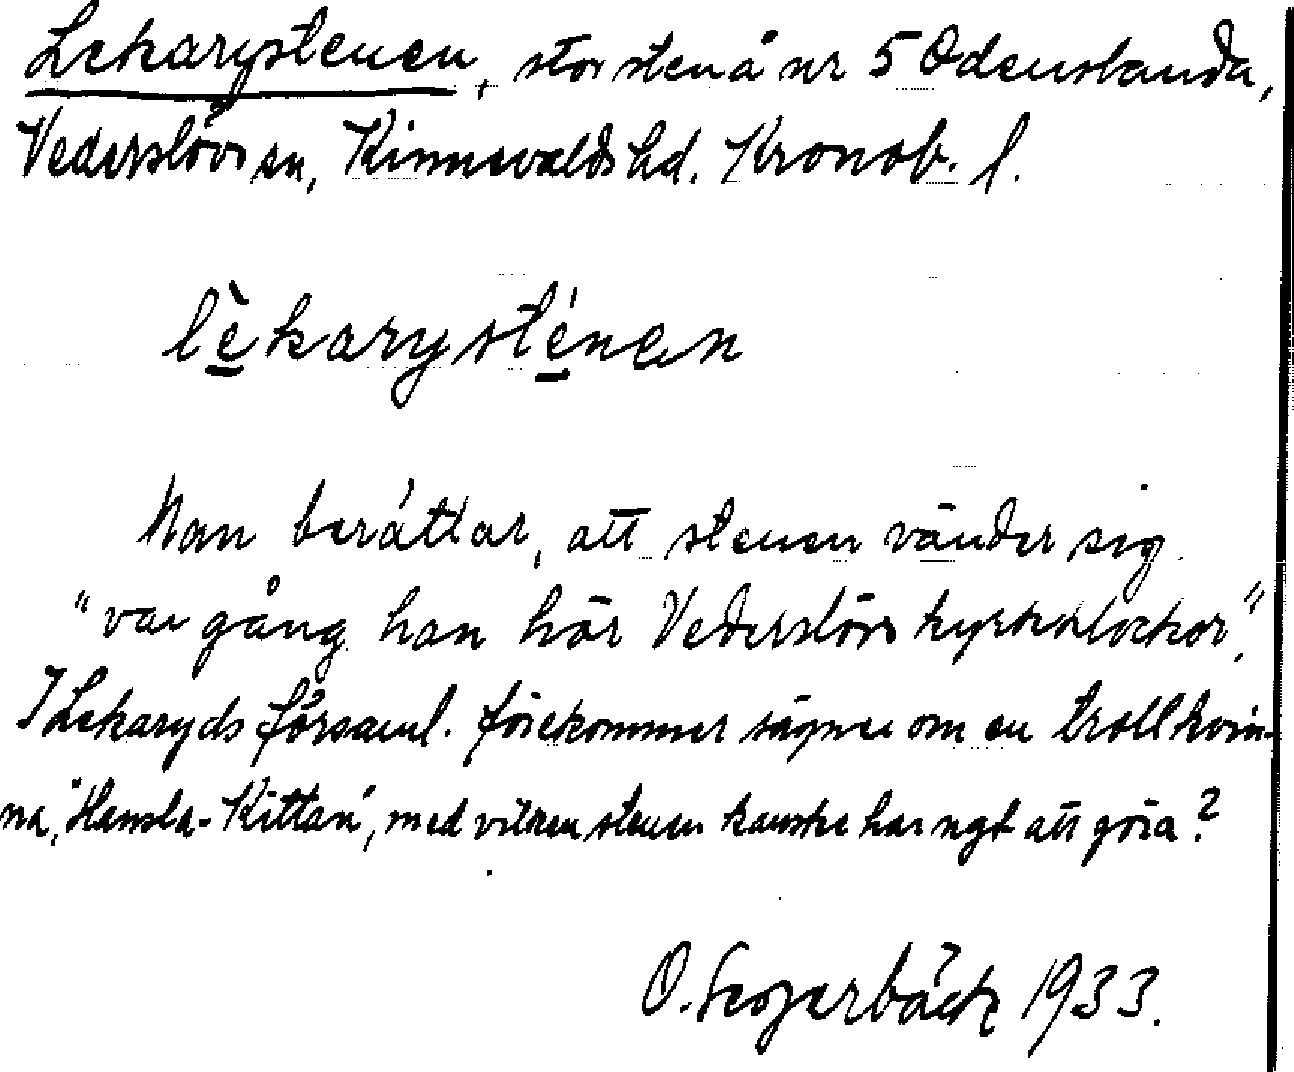 Lekarystenen, stor sten å nr 5 Odenslanda,
Vederslövs sn, Kinnevalds hd. Kronob. l.
lèkarysténen
Man berättar, att stenen vänder sig
"var gång han hör Vederslövs kyrkklockor".
I Lekaryds församl. förekommer sägner om en trollkvin-
na, "Hansla-Kittan", med vilken stenen kanske har ngt att göra?
O. 1933.